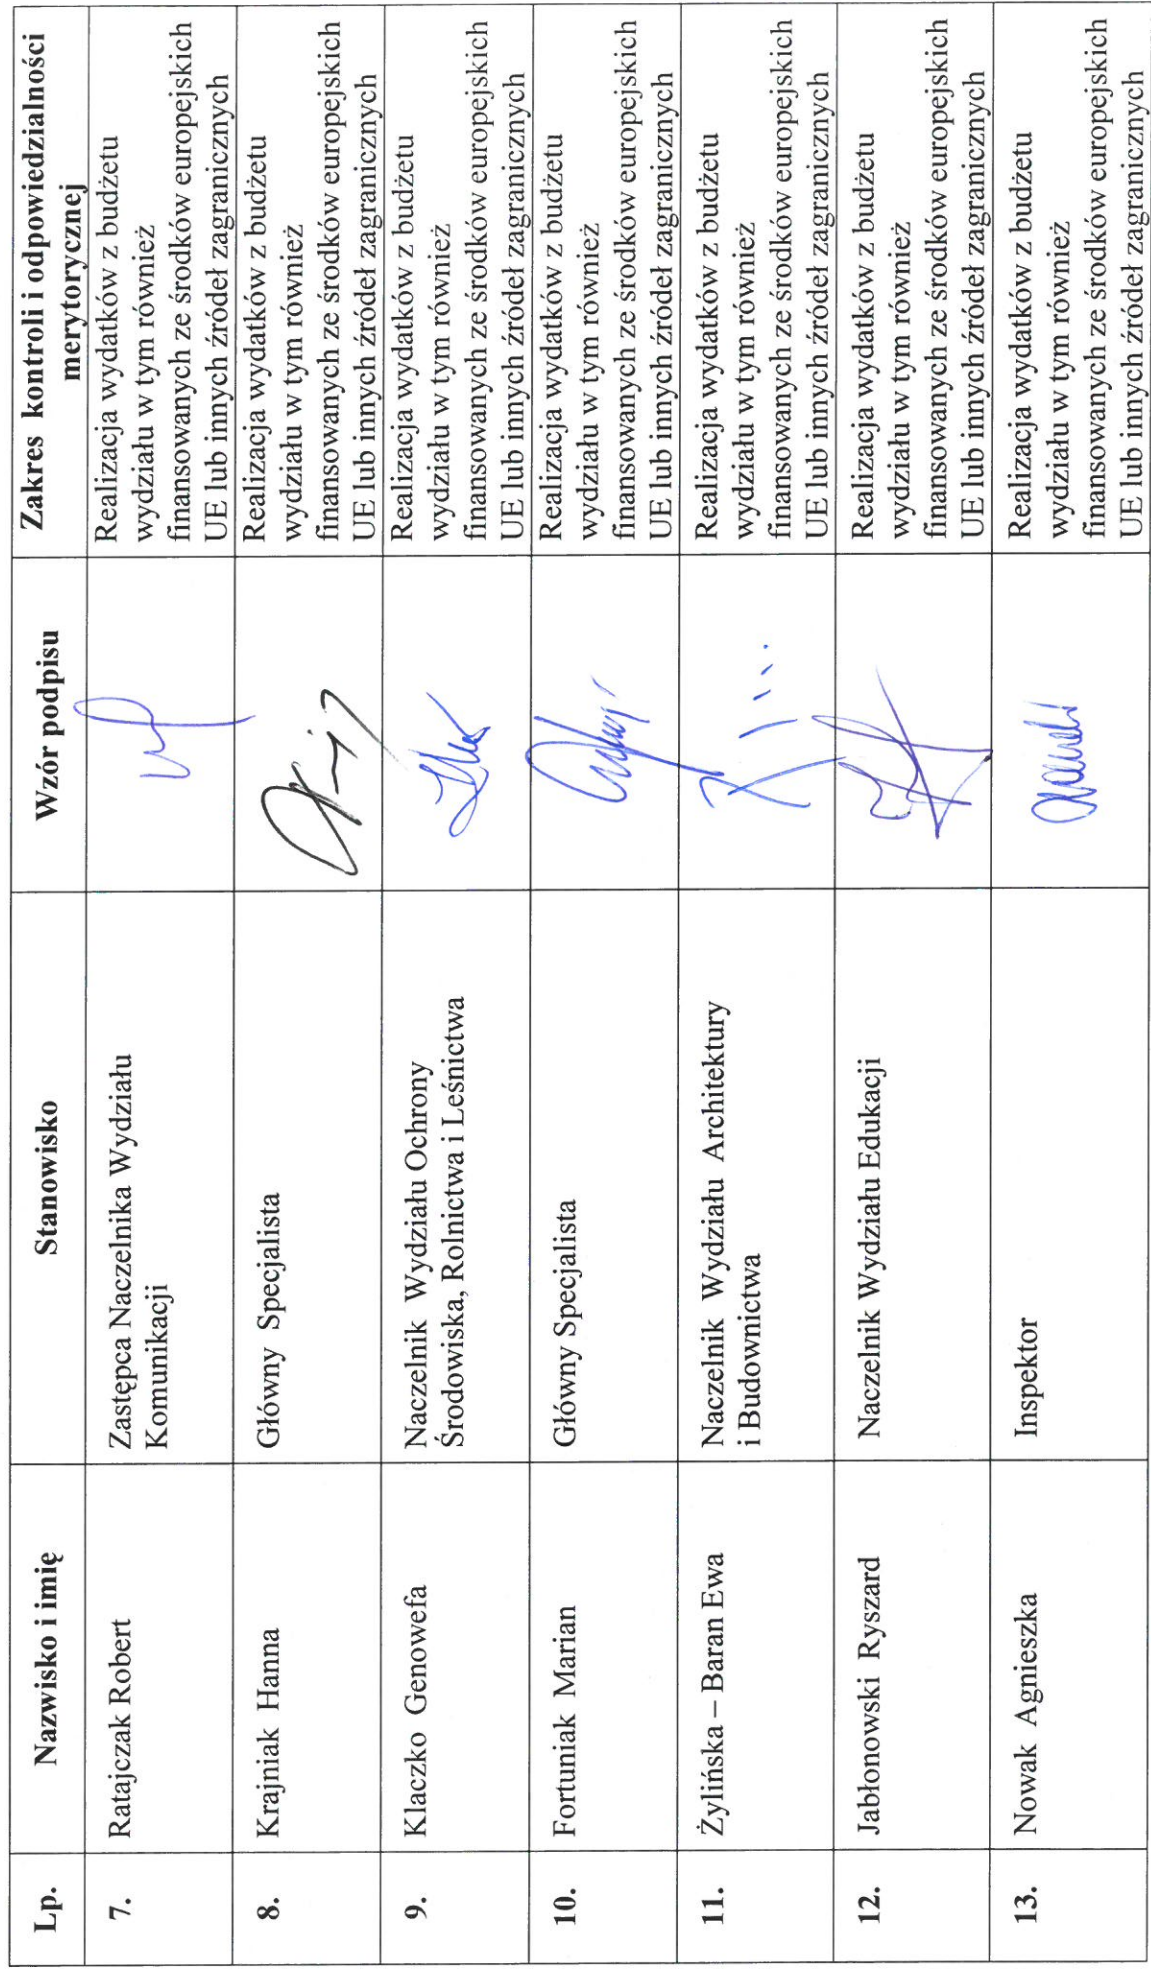 Lp.
Nazwisko i imię
Stanowisko
Wzór podpisu
Zakres kontroli i odpowiedzialności
merytorycznej
7.
Ratajczak Robert
Zastępca Naczelnika Wydziału
Komunikacji
Realizacja wydatków z budżetu
wydziału w tym również
finansowanych ze środków europejskich
UE lub innych źródeł zagranicznych
8.
Krajniak Hanna
Główny Specjalista
Realizacja wydatków z budżetu
wydziału w tym również
finansowanych ze środków europejskich
UE lub innych źródeł zagranicznych
9.
Klaczko Genowefa
Naczelnik Wydziału Ochrony
Środowiska, Rolnictwa i Leśnictwa
Realizacja wydatków z budżetu
wydziału w tym również
finansowanych ze środków europejskich
UE lub innych źródeł zagranicznych
10.
Fortuniak Marian
Główny Specjalista
Realizacja wydatków z budżetu
wydziału w tym również
finansowanych ze środków europejskich
UE lub innych źródeł zagranicznych
11.
Żylińska – Baran Ewa
Naczelnik Wydziału Architektury
i Budownictwa
Realizacja wydatków z budżetu
wydziału w tym również
finansowanych ze środków europejskich
UE lub innych źródeł zagranicznych
12.
Jabłonowski Ryszard
Naczelnik Wydziału Edukacji
Realizacja wydatków z budżetu
wydziału w tym również
finansowanych ze środków europejskich
UE lub innych źródeł zagranicznych
13.
Nowak Agnieszka
Inspektor
Realizacja wydatków z budżetu
wydziału w tym również
finansowanych ze środków europejskich
UE lub innych źródeł zagranicznych